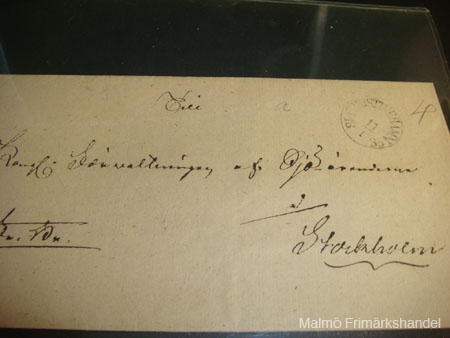 Till
a
4
Kongl: Förvaltningen af Sjöärenderne
i
Fr. Br.
Stockholm
Malmö Frimärkshandel